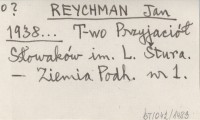 o?
REYCHMAN Jan
1938... T-wo Przyjaciół
Słowaków im. L. Štura.
— Ziemia Podh. nr 1.